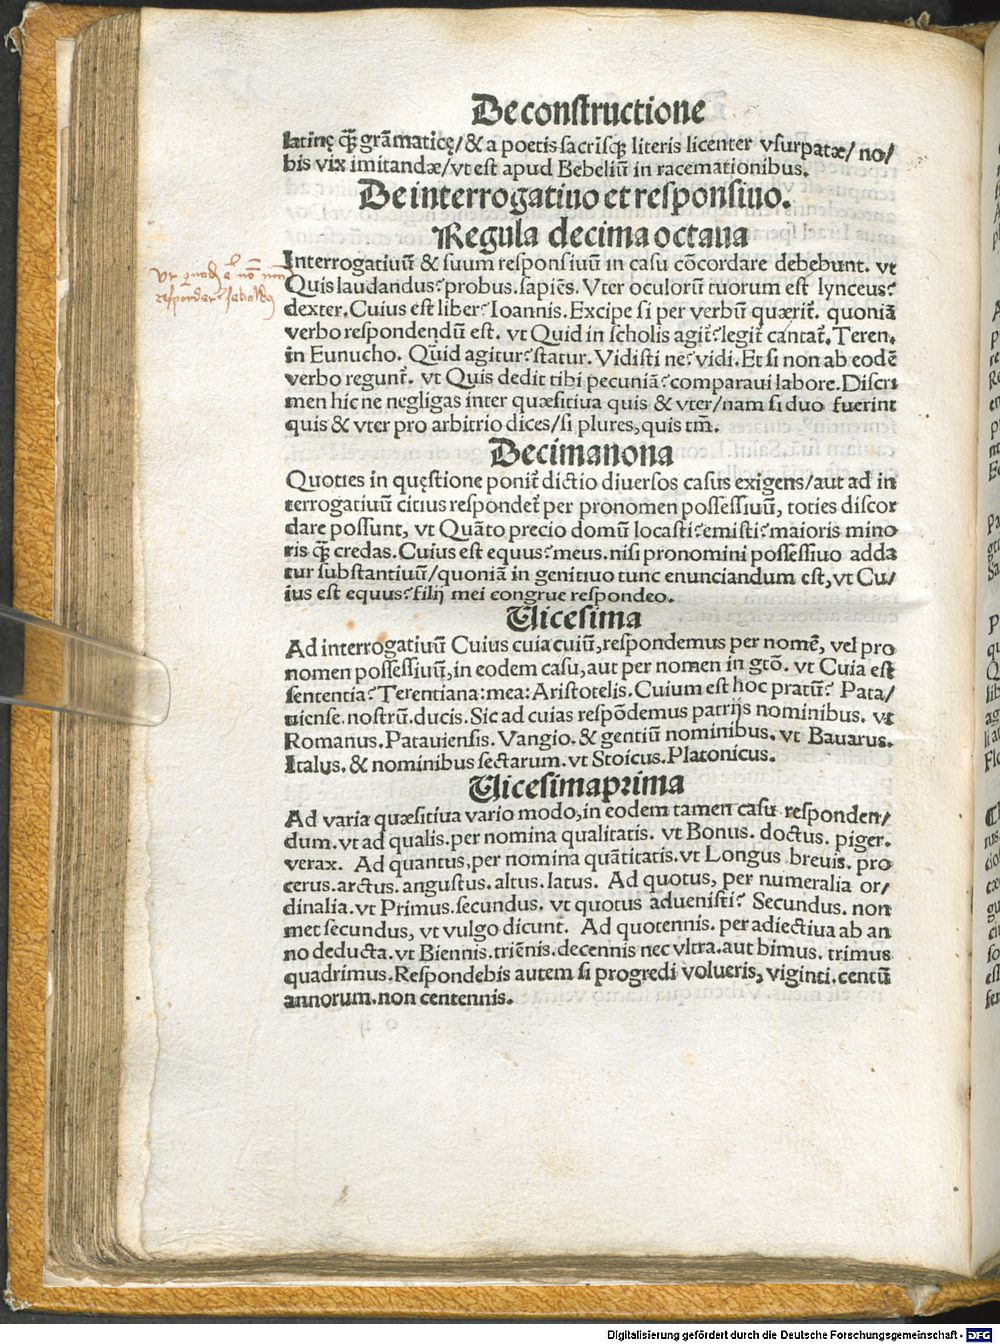 De constructione
latinę q̃ȝ grãmaticę/& a poetis sacrisqȝ literis licenter vsurpatæ/no/
bis vix imitandæ/vt est apud Bebeliũ in racemationibus.
De interrogatiuo et responsiuo.
Regula decima octaua
Interrogatiuũ & suum responsiuũ in casu cõcordare debebunt. vt
Quis laudandus? probus. sapiẽs. Vter oculorũ tuorum est lynceus?
dexter. Cuius est liber? Ioannis. Excipe si per verbũ quærit̃. quoniã
verbo respondendũ est. vt Quid in scholis agit̃? legit̃ cantat̃. Teren.
in Eunucho. Quid agitur? statur. Vidisti ne? vidi. Et si non ab eodẽ
verbo regunt̃. vt Quis dedit tibi pecuniã? comparaui labore. Discri
men hic ne negligas inter quæsitiua quis & vter/nam si duo fuerint
quis & vter pro arbitrio dices/si plures, quis tm̃.
Decimanona
Quoties in quęstione ponit̃ dictio diuersos casus exigens/aut ad in
terrogatiuũ citius respondet̃ per pronomen possessiuũ, toties discor
dare possunt, vt Quãto precio domũ locasti? emisti? maioris mino
ris q̃ȝ credas. Cuius est equus? meus. nisi pronomini possessiuo adda
tur substantiuũ/quoniã in genitiuo tunc enunciandum est, vt Cu/
ius est equus? filij mei congrue respondeo.
Vicesima
Ad interrogatiuũ Cuius cuia cuiũ, respondemus per nomẽ, vel pro
nomen possessiuũ, in eodem casu, aut per nomen in gtõ. vt Cuia est
sententia? Terentiana: mea: Aristotelis. Cuium est hoc pratũ? Pata/
uiense. nostrũ. ducis. Sic ad cuias respõdemus patrijs nominibus. vt
Romanus. Patauiensis. Vangio. & gentiũ nominibus. vt Bauarus.
Italus. & nominibus sectarum. vt Stoicus. Platonicus.
Vicesimaprima
Ad varia quæsitiua vario modo, in eodem tamen casu responden/
dum. vt ad qualis. per nomina qualitatis. vt Bonus. doctus. piger.
verax. Ad quantus, per nomina quãtitatis. vt Longus breuis. pro
cerus. arctus. angustus. altus. latus. Ad quotus, per numeralia or/
dinalia. vt Primus. secundus. vt quotus aduenisti? Secundus. non
met secundus, vt vulgo dicunt. Ad quotennis. per adiectiua ab an
no deducta. vt Biennis. triẽnis. decennis nec vltra. aut bimus. trimus
quadrimus. Respondebis autem si progredi volueris, viginti. centũ
annorum. non centennis.
Digitalisierung gefördert durch die Deutsche Forschungsgemeinschaft - DFG